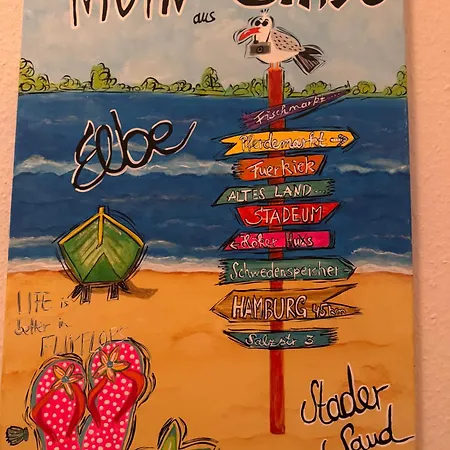 Moin aus
Elbe
Fischmarkt
Pferdemarkt
Fuerkiek
ALTES LAND...
STADEUM
Höker Huus
Schwedenspeicher
HAMBURG 45km
Salzstr 3
LIFE is
better in
FLIPFLOPS
Stader
Sand